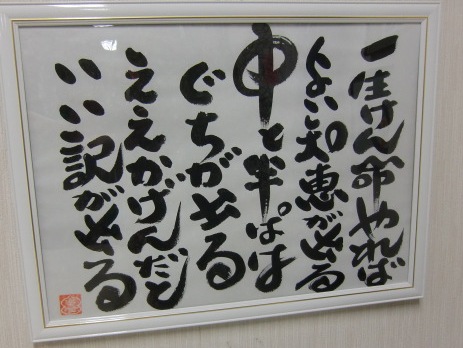 一生けん命やれば
よい知恵が出る
中と半ぱは
ぐちが出る
ええかげんだと
いい記が出る